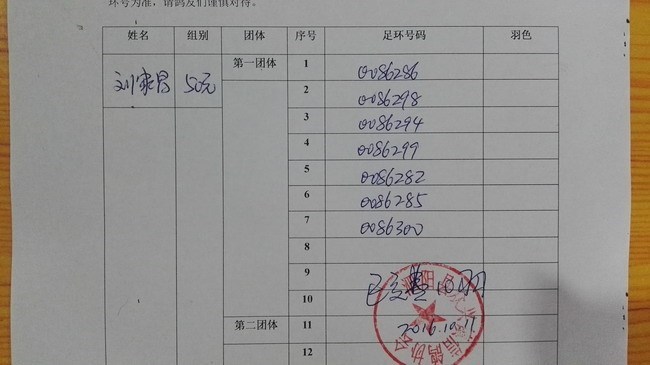 环号为准，请鸽友们谨慎对待。
姓名 组别 团体 序号 足环号码 羽色
刘家昌 50元 第一团体 1 0086286
2 0086298
3 0086294
4 0086299
5 0086282
6 0086285
7 0086300
8
9
已交费10羽
10
第二团体 11 2016.10.11
12